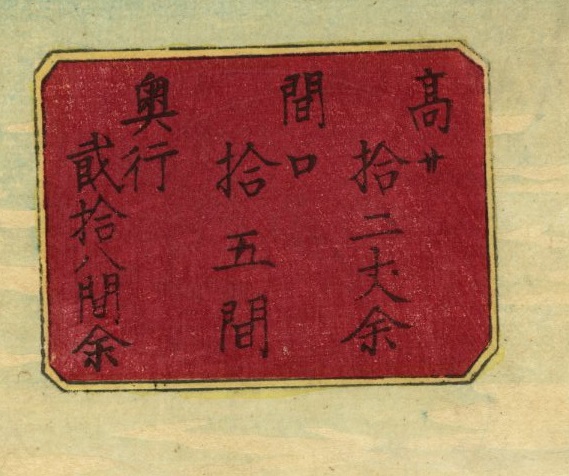 高サ
拾二丈余
間口
拾五間
奥行
貮拾八間余